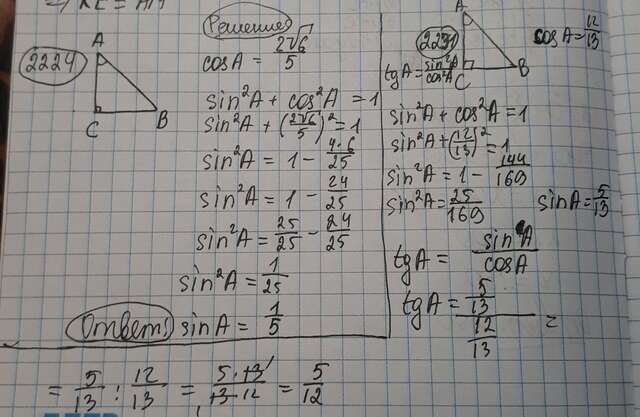 ⇒ KE = AM
2224
A
C
B
Решение
cosA = 2√6/5
sin²A + cos²A = 1
sin²A + (2√6/5)² = 1
sin²A = 1 - 4·6/25
sin²A = 1 - 24/25
sin²A = 25/25 - 24/25
sin²A = 1/25
Ответ: sinA = 1/5
2231
A
C
B
cosA = 12/13
tgA = sin²A/cos²A
sin²A + cos²A = 1
sin²A + (12/13)² = 1
sin²A = 1 - 144/169
sin²A = 25/169 sinA = 5/13
tgA = sinA/cosA
tgA = 5/13 / 12/13 =
= 5/13 : 12/13 = 5·13/13·12 = 5/12